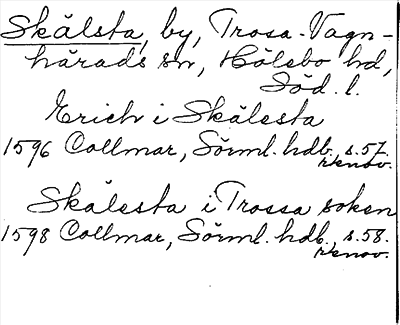 Skälsta, by, Trosa-Vagn-
härads sn, Hölebo hd,
Söd. l.
Erich i Skälesta
1596 Collmar, Sörml. hdb., s. 57.
rknov.
Skälesta i Trossa soken
1598 Collmar, Sörml. hdb., s. 58.
rknov.